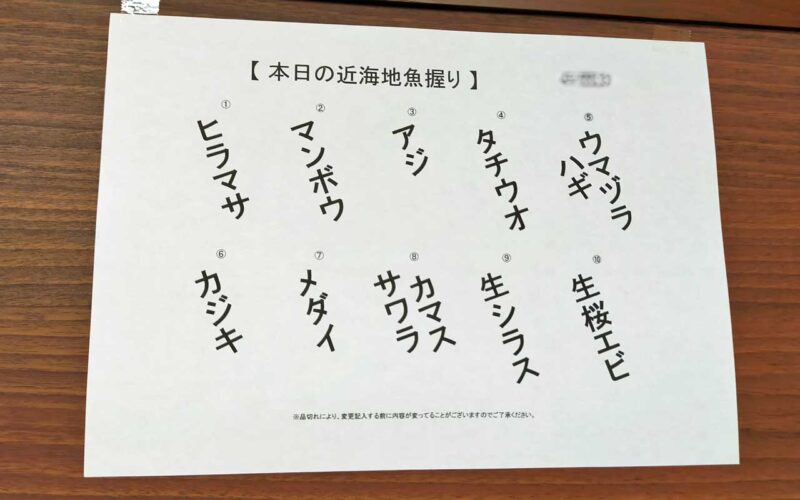 【 本日の近海地魚握り 】
① ヒラマサ
② マンボウ
③ アジ
④ タチウオ
⑤ ウマヅラ
ハギ
⑥ カジキ
⑦ メダイ
⑧ カマス
サワラ
⑨ 生シラス
⑩ 生桜エビ
※品切れにより、変更記入する前に内容が変ってることがございますのでご了承ください。